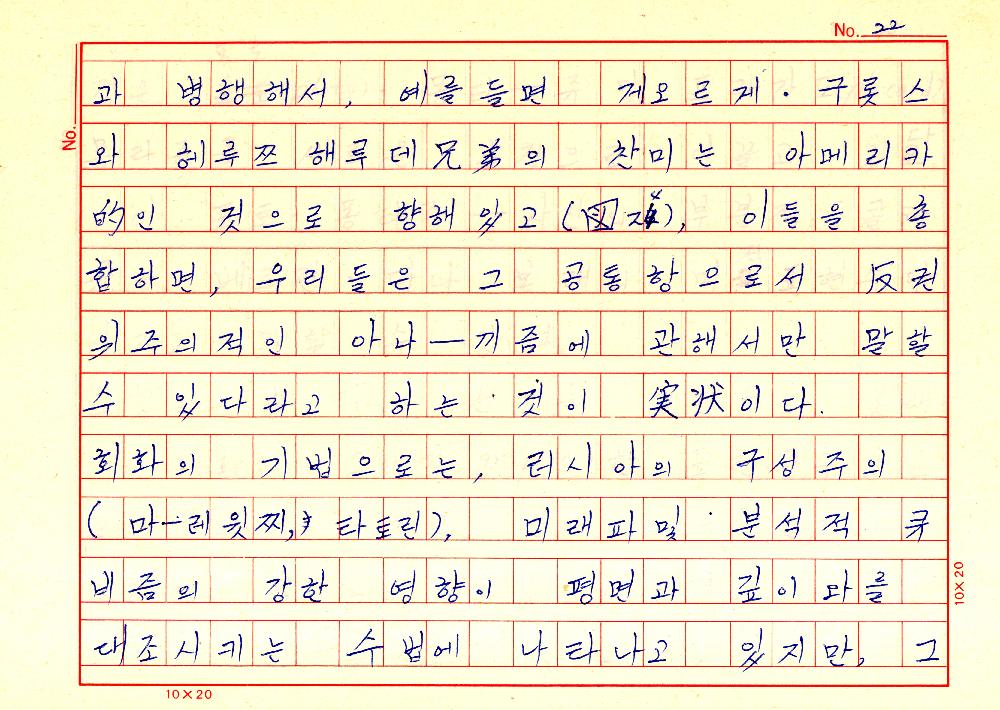 No. 22
No.
과 병행해서, 예를들면 게오르게·구롯스
와 헤루쯔해루데兄弟의 찬미는 아메리카
的인 것으로 향해있고(図 4), 이들을 총
합하면, 우리들은 그 공통항으로서 反권
위주의적인 아나—끼즘에 관해서만 말할
수 있다라고 하는 것이 実状이다.
회화의 기법으로는, 러시아의 구성주의
(마—레윗찌, 타토린), 미래파 및 분석적 큐
비즘의 강한 영향이 평면과 깊이와를
대조시키는 수법에 나타나고 있지만, 그
10×20
10×20